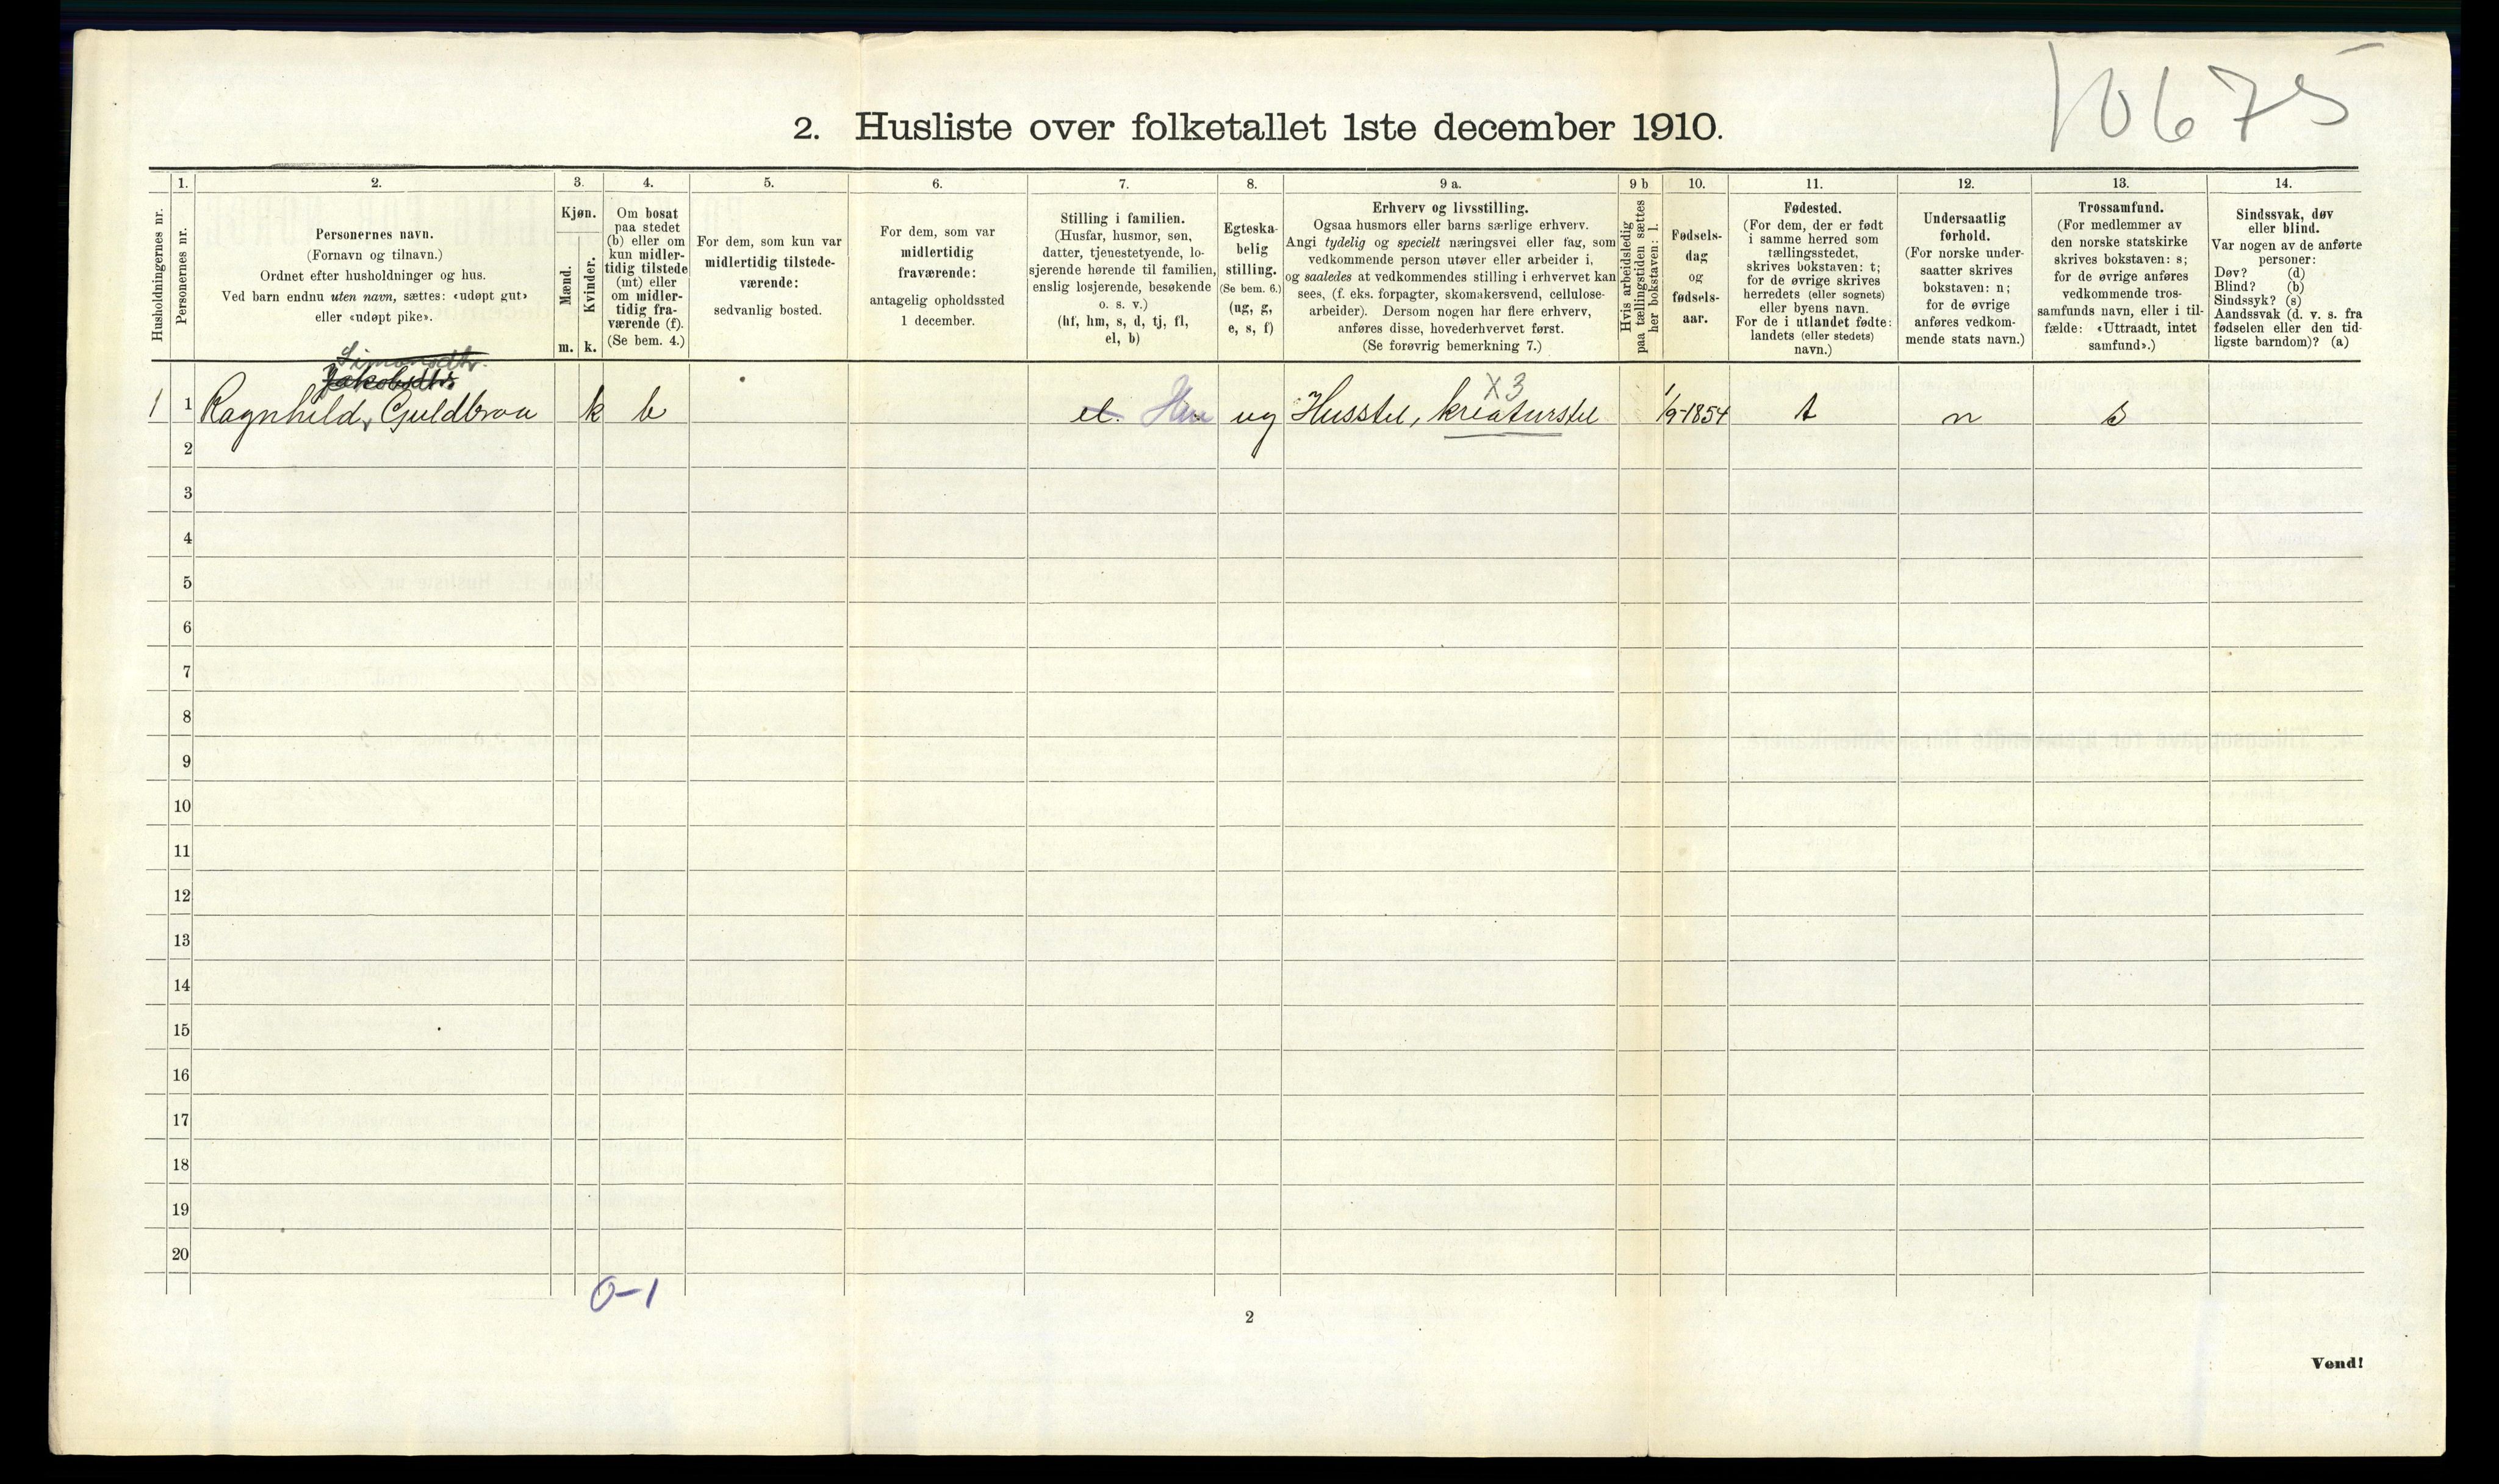 10675
2. Husliste over folketallet 1ste december 1910.
Husholdningernes nr.
1.
Personernes nr.
2.
Personernes navn.
(Fornavn og tilnavn.)
Ordnet efter husholdninger og hus.
Ved barn endnu uten navn, sættes: «udøpt gut»
eller «udøpt pike».
3.
Kjøn.
Mænd.
Kvinder.
m.
k.
4.
Om bosat
paa stedet
(b) eller om
kun midler-
tidig tilstede
(mt) eller
om midler-
tidig fra-
værende (f).
(Se bem. 4.)
5.
For dem, som kun var
midlertidig tilstede-
værende:
sedvanlig bosted.
6.
For dem, som var
midlertidig
fraværende:
antagelig opholdssted
1 december.
7.
Stilling i familien.
(Husfar, husmor, søn,
datter, tjenestetyende, lo-
sjerende hørende til familien,
enslig losjerende, besøkende
o. s. v.)
(hf, hm, s, d, tj, fl,
el, b)
8.
Egteska-
belig
stilling.
(Se bem. 6.)
(ug, g,
e, s, f)
9 a.
Erhverv og livsstilling.
Ogsaa husmors eller barns særlige erhverv.
Angi tydelig og specielt næringsvei eller fag, som
vedkommende person utøver eller arbeider i,
og saaledes at vedkommendes stilling i erhvervet kan
sees, (f. eks. forpagter, skomakersvend, cellulose-
arbeider). Dersom nogen har flere erhverv,
anføres disse, hovederhvervet først.
(Se forøvrig bemerkning 7.)
9 b
Hvis arbeidsledig
paa tællingstiden sættes
her bokstaven: l.
10.
Fødsels-
dag
og
fødsels-
aar.
11.
Fødested.
(For dem, der er født
i samme herred som
tællingsstedet,
skrives bokstaven: t;
for de øvrige skrives
herredets (eller sognets)
eller byens navn.
For de i utlandet fødte:
landets (eller stedets)
navn.)
12.
Undersaatlig
forhold.
(For norske under-
saatter skrives
bokstaven: n;
for de øvrige
anføres vedkom-
mende stats navn.)
13.
Trossamfund.
(For medlemmer av
den norske statskirke
skrives bokstaven: s;
for de øvrige anføres
vedkommende tros-
samfunds navn, eller i til-
fælde: «Uttraadt, intet
samfund».)
14.
Sindssvak, døv
eller blind.
Var nogen av de anførte
personer:
Døv? (d)
Blind? (b)
Sindssyk? (s)
Aandssvak (d. v. s. fra
fødselen eller den tid-
ligste barndom)? (a)
Simonsdtr.
Jakobsdtr.
X3
1 1 Ragnhild, Guldbraa k b el. ug Husstel, kreaturstel 1/9-1854 t n s
2
3
4
5
6
7
8
9
10
11
12
13
14
15
16
17
18
19
20
0-1
2
Vend!